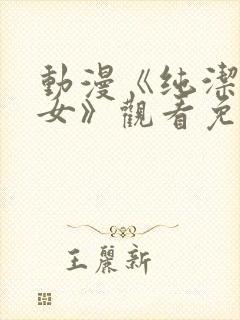 動漫《纯潔
女》觀看免
王麗新